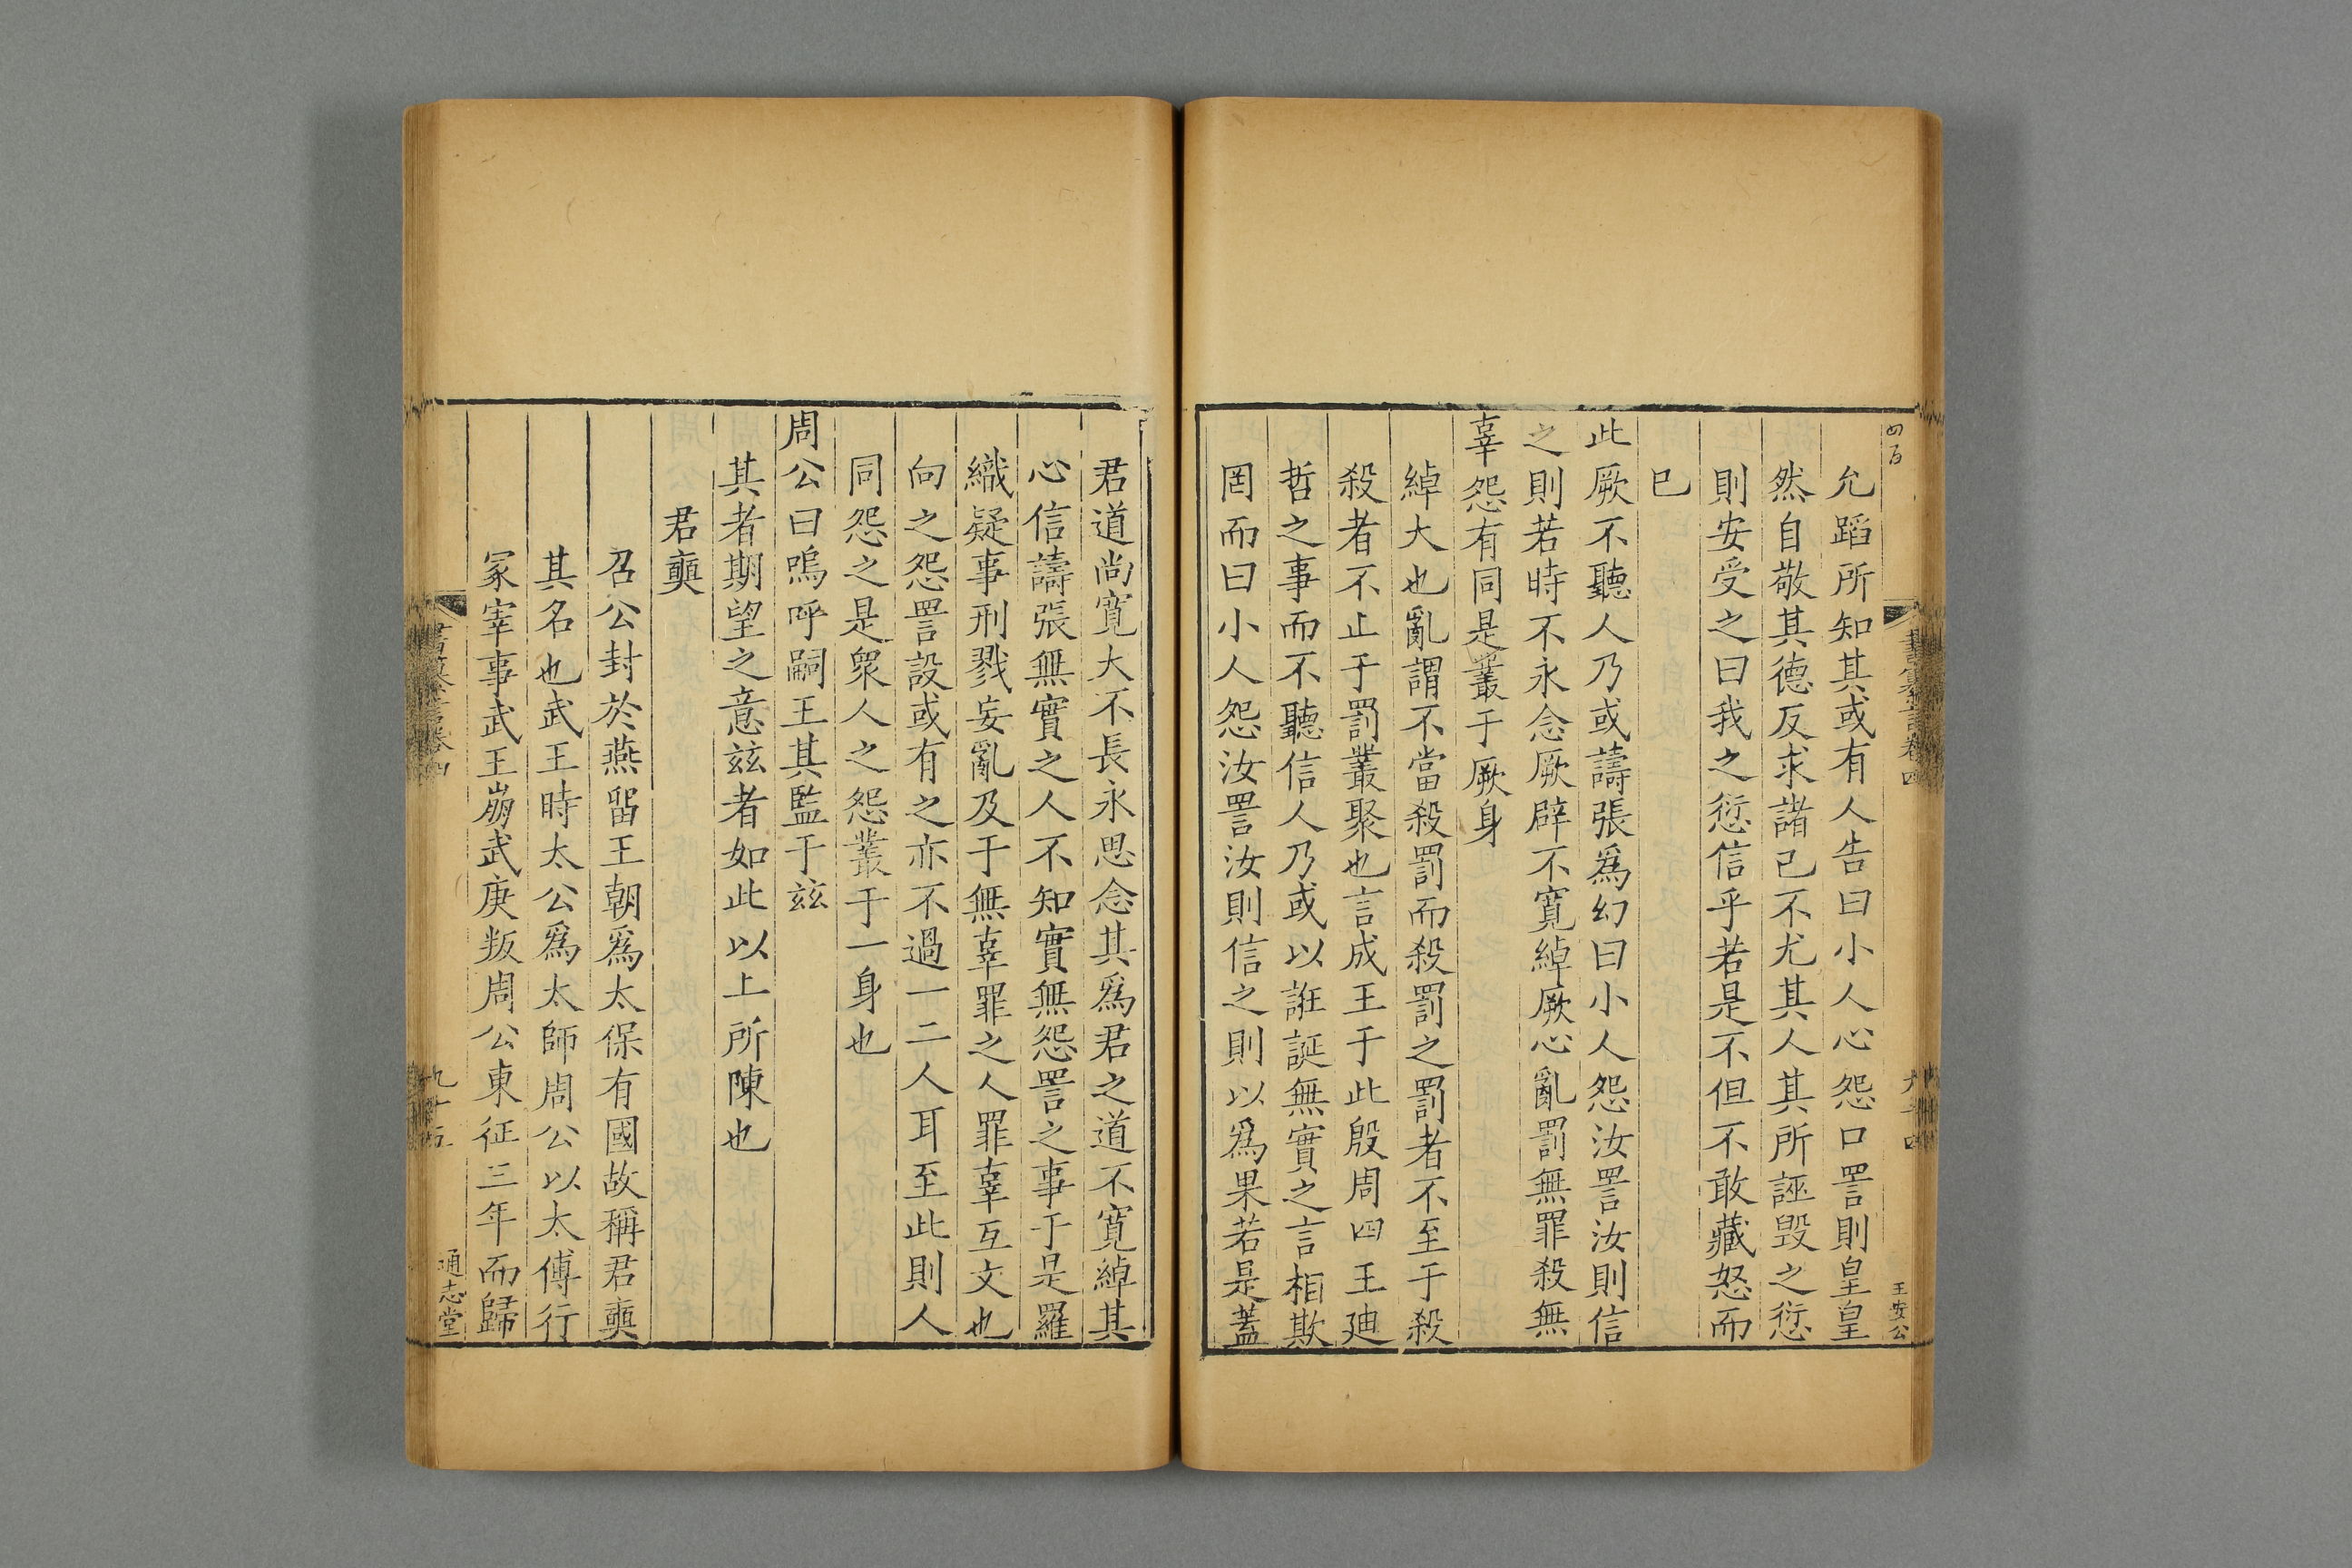 四百
書纂言卷四
九十四
王安公
允蹈所知其或有人告曰小人心怨口詈則皇皇
然自敬其德反求諸己不尤其人其所誣毀之愆
則安受之曰我之愆信乎若是不但不敢藏怒而
已
此厥不聽人乃或譸張爲幻曰小人怨汝詈汝則信
之則若時不永念厥辟不寬綽厥心亂罰無罪殺無
辜怨有同是叢于厥身
綽大也亂謂不當殺罰而殺罰之罰者不至于殺
殺者不止于罰叢聚也言成王于此殷周四王廸
哲之事而不聽信人乃或以誑誕無實之言相欺
罔而曰小人怨汝詈汝則信之則以爲果若是蓋
君道尚寬大不長永思念其爲君之道不寬綽其
心信譸張無實之人不知實無怨詈之事于是羅
織疑事刑戮妄亂及于無辜罪之人罪辜互文也
向之怨詈設或有之亦不過一二人耳至此則人
同怨之是衆人之怨叢于一身也
周公曰嗚呼嗣王其監于茲
其者期望之意茲者如此以上所陳也
君奭
召公封於燕留王朝爲太保有國故稱君奭
其名也武王時太公爲太師周公以太傅行
冢宰事武王崩武庚叛周公東征三年而歸
書纂言卷四
九十五
通志堂